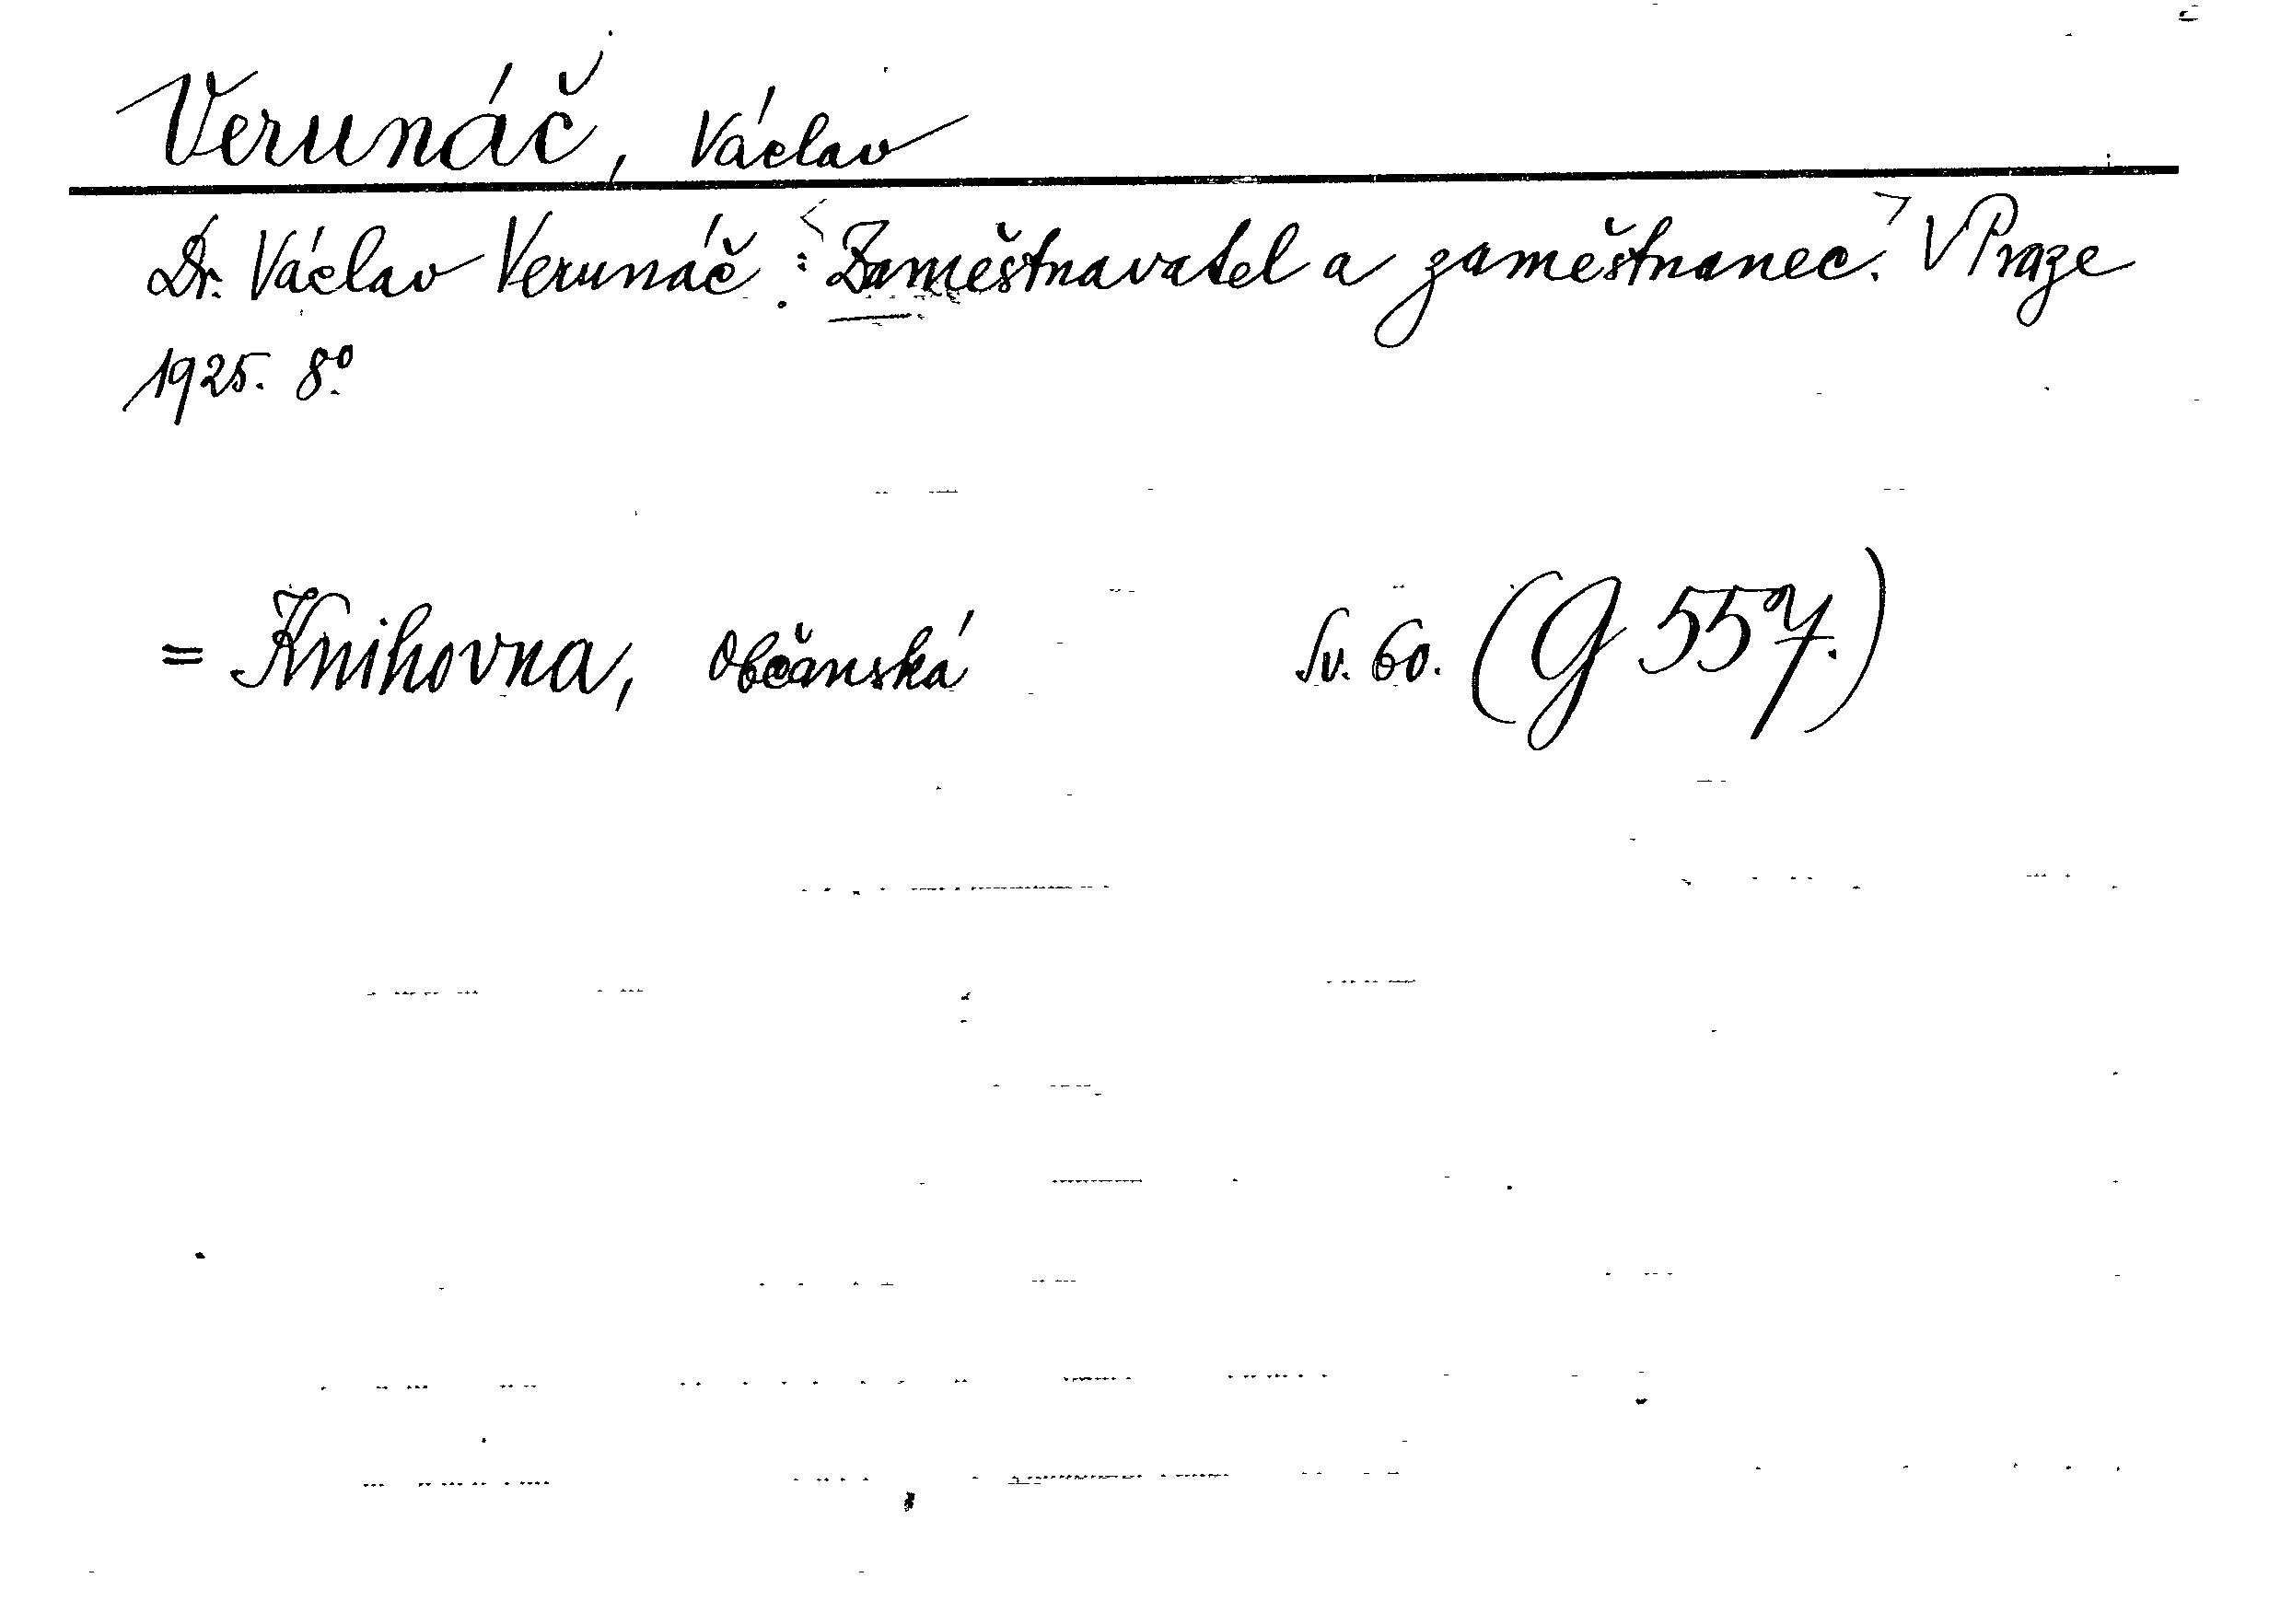 Verunáč, Václav
Dr. Václav Verunáč: <Zaměstnavatel a zaměstnanec.> V Praze
1925. 8º.
= Knihovna, Občanská Sv. 60. (G 557.)